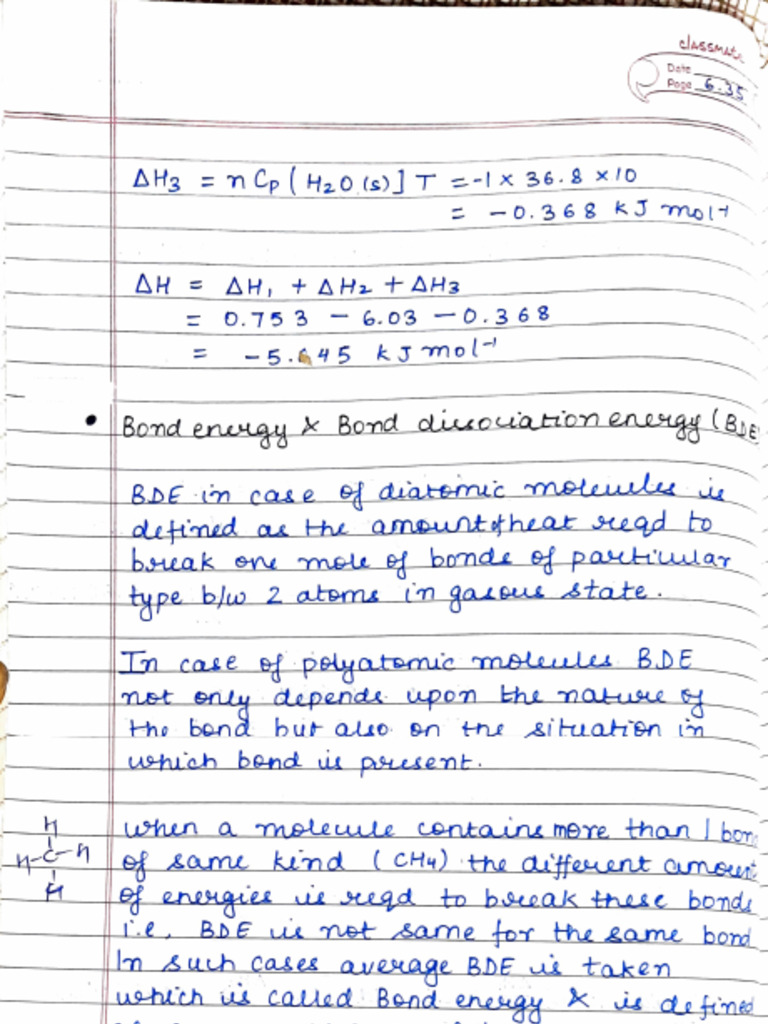 classmate
Date
Page 6.35
ΔH3 = n Cp [H2O (s)] T = -1 × 36.8 × 10
= -0.368 kJ mol-1
ΔH = ΔH1 + ΔH2 + ΔH3
= 0.753 - 6.03 - 0.368
= -5.645 kJ mol-1
• Bond energy & Bond dissociation energy (BDE
BDE in case of diatomic molecules is
defined as the amount of heat reqd to
break one mole of bonds of particular
type b/w 2 atoms in gasous state.
In case of polyatomic molecules BDE
not only depends upon the nature of
the bond but also on the situation in
which bond is present.
H
H-C-H
H
when a molecule contains more than 1 bon
of same kind (CH4) the different amount
of energies is reqd to break these bonds
i.e, BDE is not same for the same bond
In such cases average BDE is taken
which is called Bond energy & is defined